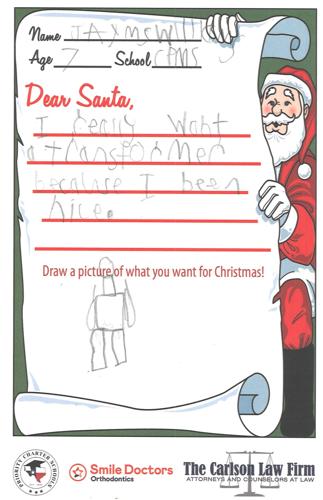 Name JAYMeWill
Age 7 School CPMS
Dear Santa,
I really Want
a transformer
because I been
nice.
Draw a picture of what you want for Christmas!
PRIORITY CHARTER SCHOOLS
Smile Doctors
Orthodontics
The Carlson Law Firm
ATTORNEYS AND COUNSELORS AT LAW